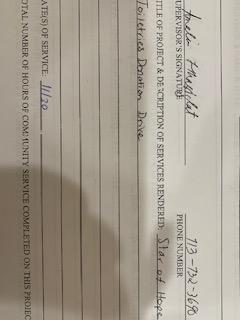 713-732-3690
SUPERVISOR'S SIGNATURE PHONE NUMBER
TITLE OF PROJECT & DESCRIPTION OF SERVICES RENDERED: Star of Hope
Toiletries Donation Drive
DATE(S) OF SERVICE: 11/20
TOTAL NUMBER OF HOURS OF COMMUNITY SERVICE COMPLETED ON THIS PROJEC